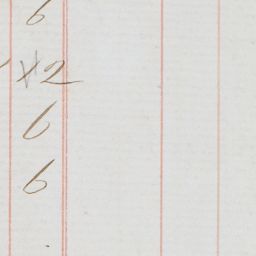 6
2
6
6